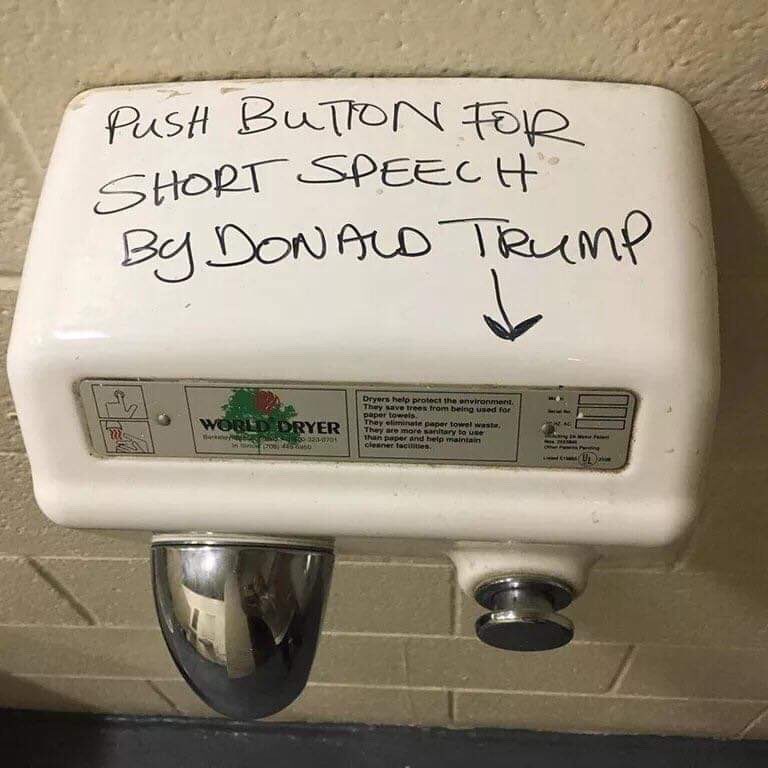 PUSH BUTTON FOR
SHORT SPEECH
BY DONALD TRUMP
WORLD DRYER
Dryers help protect the environment.
They save trees from being used for
paper towels.
They eliminate paper towel waste.
They are more sanitary to use
than paper and help maintain
cleaner facilities.
UL